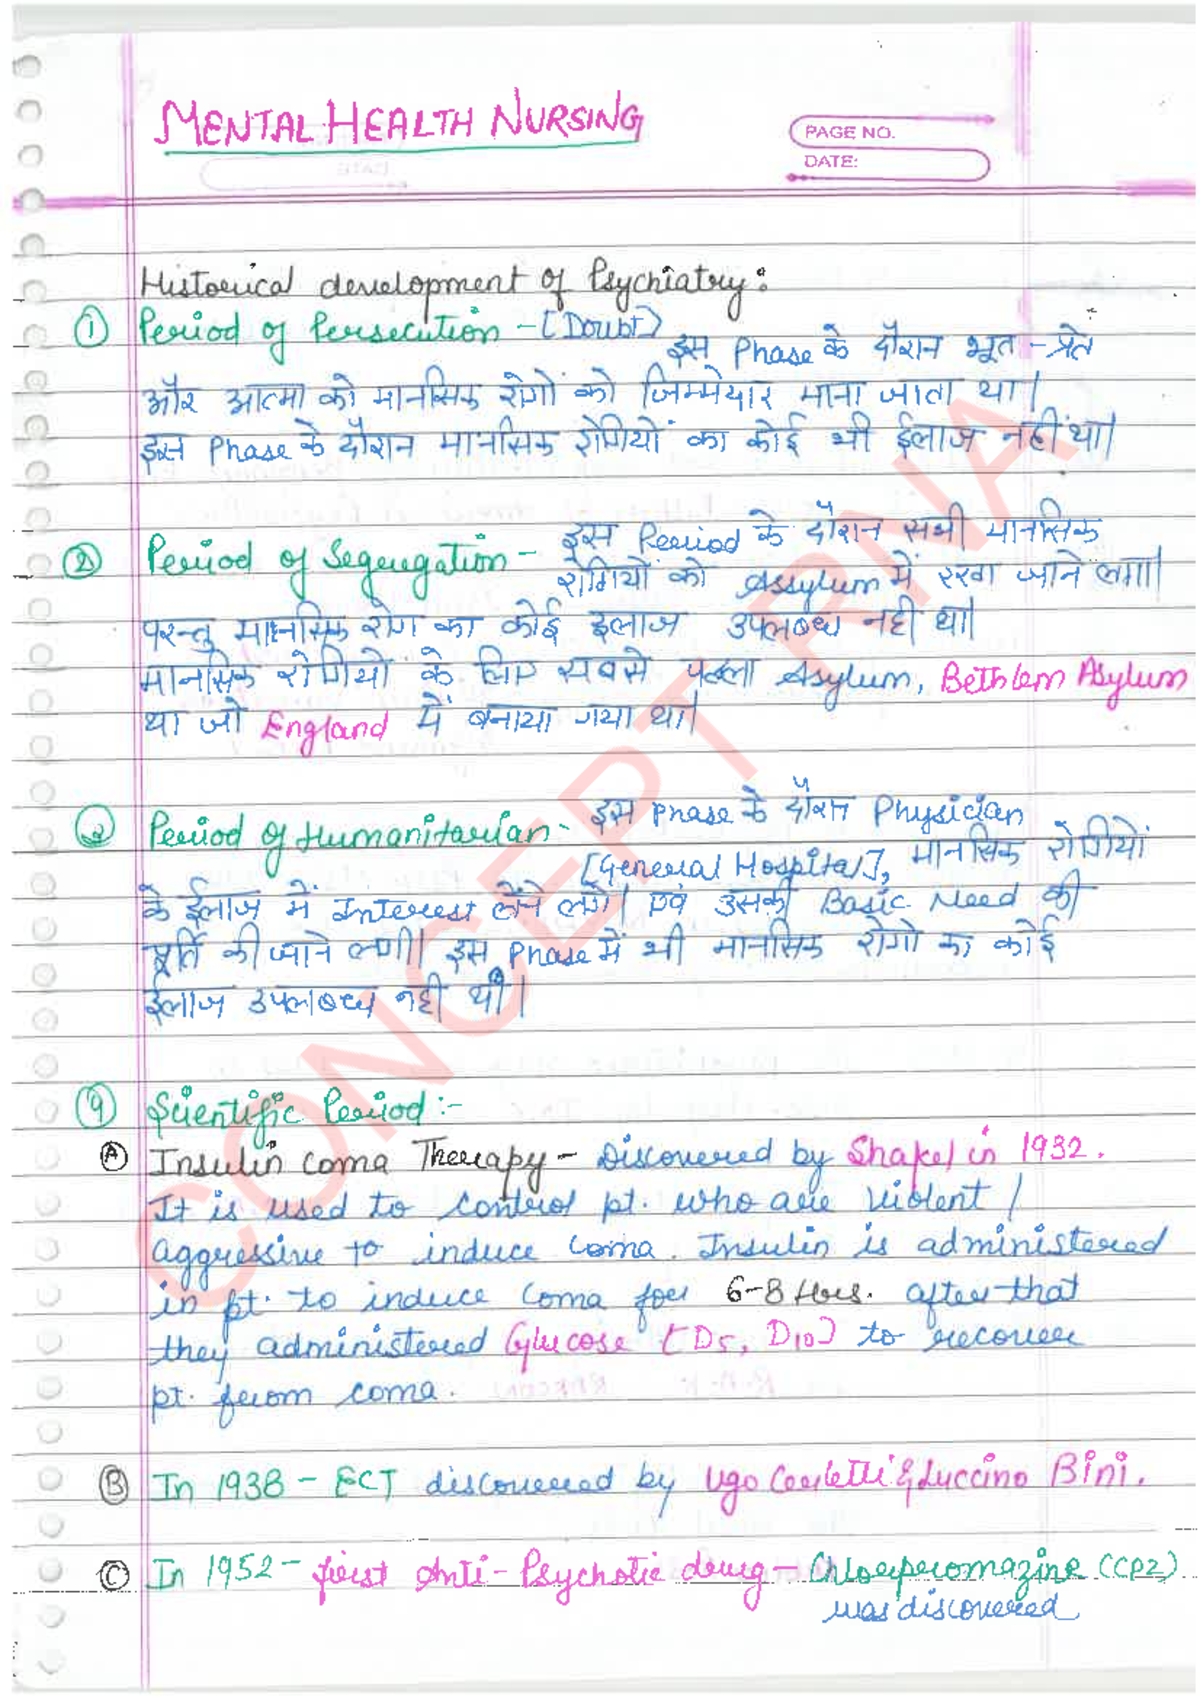 MENTAL HEALTH NURSING
PAGE NO.
DATE:
Historical development of Psychiatry:
① Period of Persecution - [Doubt] इस Phase के दौरान भूत-प्रेत
और आत्मा को मानसिक रोगों को जिम्मेयार माना जाता था।
इस Phase के दौरान मानसिक रोगियों का कोई भी ईलाज नहीं था।
② Period of Segregation - इस Period के दौरान सभी मानसिक
रोगियों को Assylum में रखा जाने लगा।
परन्तु मानसिक रोग का कोई इलाज उपलब्ध नही था।
मानसिक रोगियों के लिए सबसे पहला Asylum, Bethlem Asylum
था जो England में बनाया गया था।
③ Period of Humanitarian - इस Phase के दौरान Physician
[General Hospital], मानसिक रोगियों
के ईलाज में Interest लेने लगे। एवं उसकी Basic Need की
पूर्ति की जाने लगी। इस Phase में भी मानसिक रोगो का कोई
ईलाज उपलब्ध नही थी।
④ Scientific Period :-
Ⓐ Insulin coma Therapy - Discovered by Shakel in 1932.
It is used to control pt. who are violent /
aggressive to induce coma. Insulin is administered
in pt. to induce coma for 6-8 Hrs. after that
they administered Glucose [D5, D10] to recover
pt. from coma.
Ⓑ In 1938 - ECT discovered by Ugo Cerletti & Luccino Bini.
Ⓒ In 1952 - first Anti-Psychotic drug - Chlorpromazine (CPZ)
was discovered
CONCEPT RNA